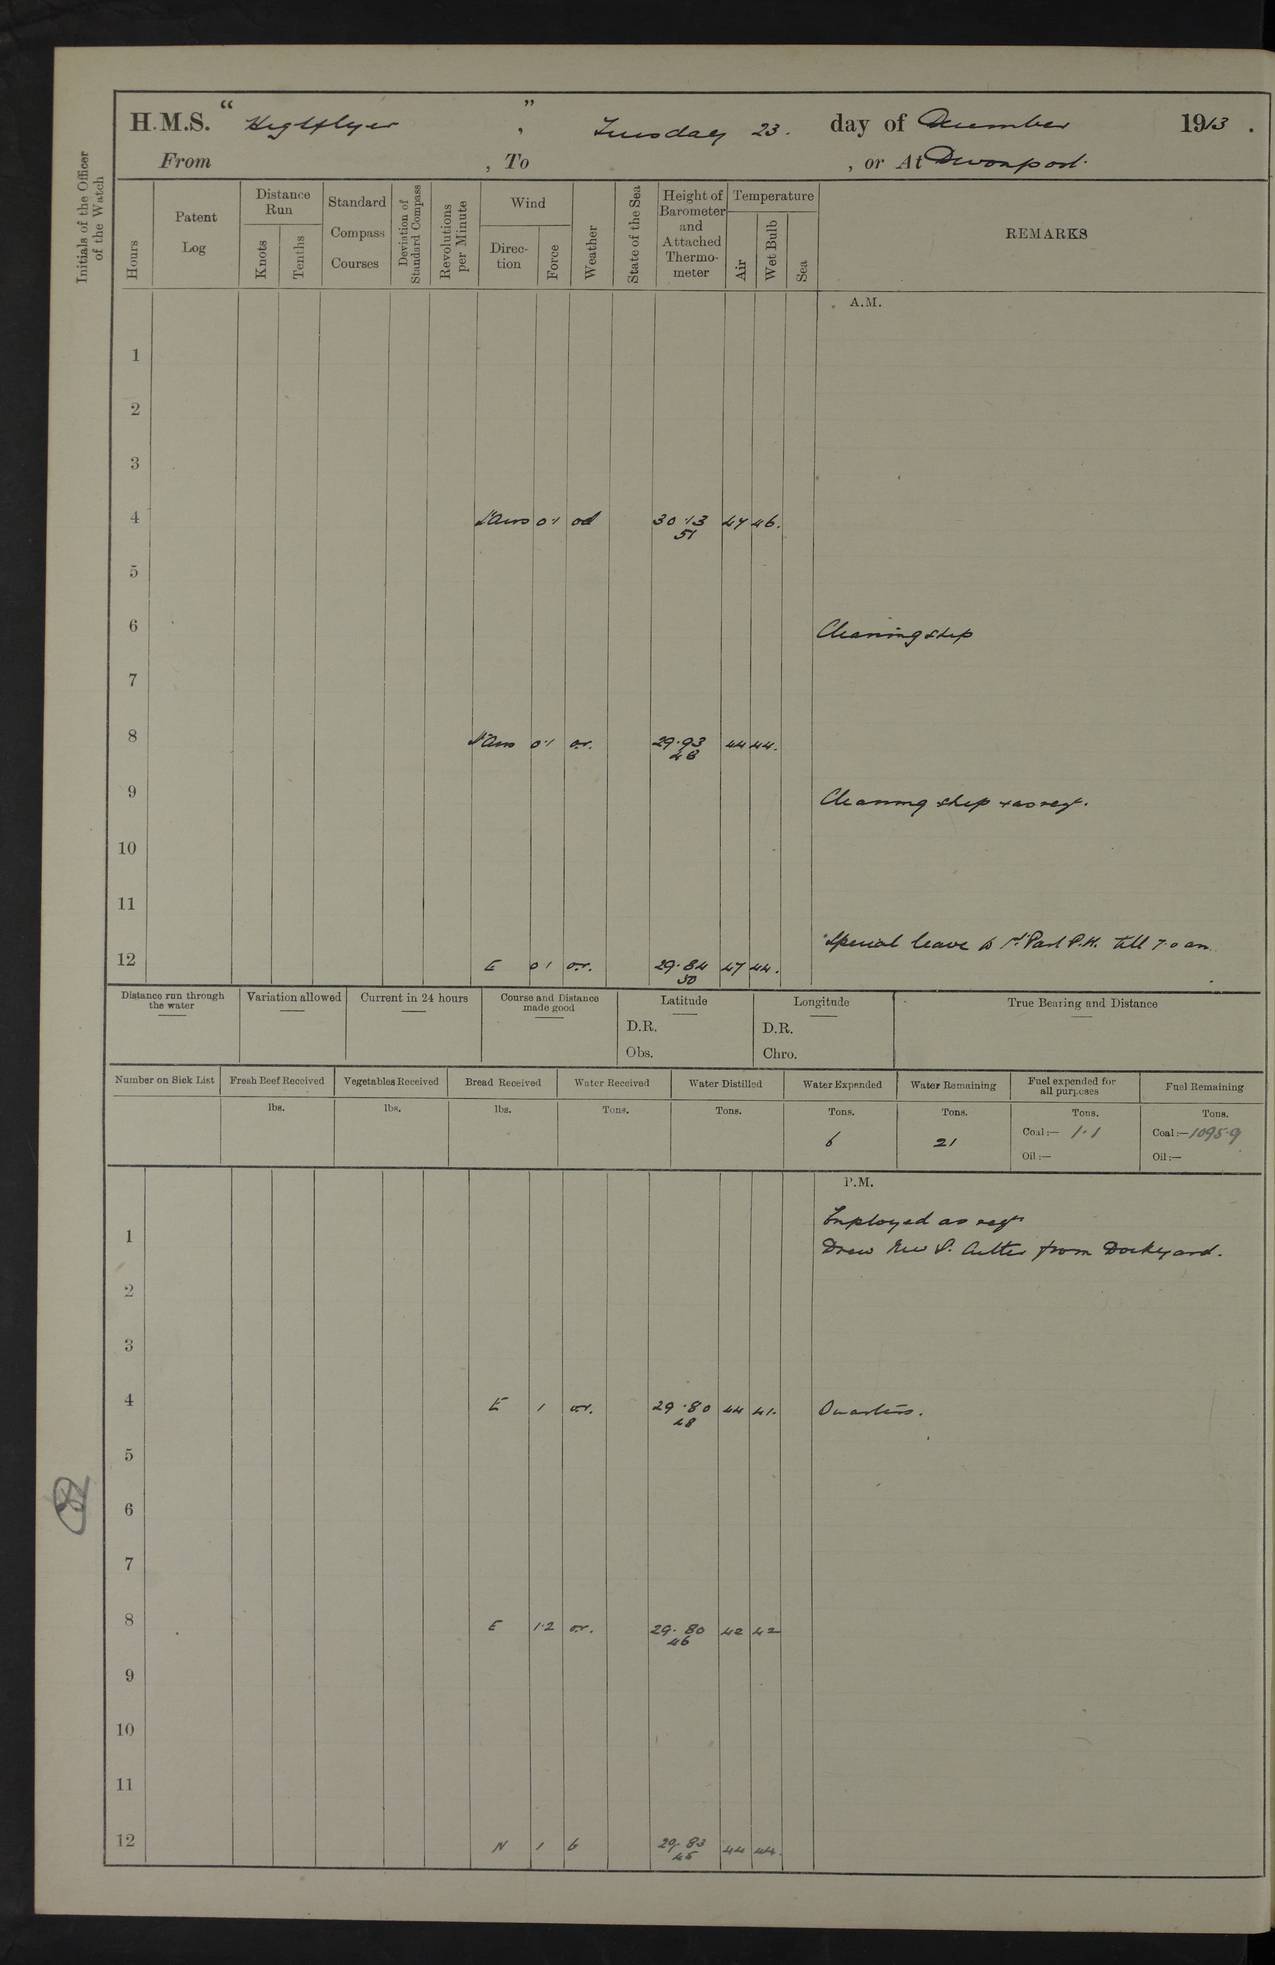 H.M.S. "Highflyer", Tuesday 23. day of December 1913.
From , To , or At Devonport.
Initials of the Officer of the Watch
Hours
Patent Log
Distance Run
Knots
Tenths
Standard Compass Courses
Deviation of Standard Compass
Revolutions per Minute
Wind
Direction
Force
Weather
State of the Sea
Height of Barometer and Attached Thermometer
Temperature
Air
Wet Bulb
Sea
REMARKS
A.M.
1
2
3
4 0·1 od 30·13 47 46.
51
5
6 Cleaning ship
7
8 0·1 o.r. 29·93 44 44.
48
9 Cleaning ship & as reqt.
10
11
Special leave to 1st Part P.W. till 7.0 am
12 E 0 1 o.r. 29·84 47 44.
50
Distance run through the water
Variation allowed
Current in 24 hours
Course and Distance made good
Latitude
D.R.
Obs.
Longitude
D.R.
Chro.
True Bearing and Distance
Number on Sick List
Fresh Beef Received
lbs.
Vegetables Received
lbs.
Bread Received
lbs.
Water Received
Tons.
Water Distilled
Tons.
Water Expended
Tons.
6
Water Remaining
Tons.
21
Fuel expended for all purposes
Tons.
Coal:— 1·1
Oil:—
Fuel Remaining
Tons.
Coal:— 1095·9
Oil:—
P.M.
Employed as reqt
1 Drew New S. Cutter from Dockyard.
2
3
4 E 1 o.r. 29·80 44 41. Quarters.
48
5
6
7
8 E 1·2 o.r. 29·80 42 42
46
9
10
11
12 N 1 b 29·83 44 44.
45
82